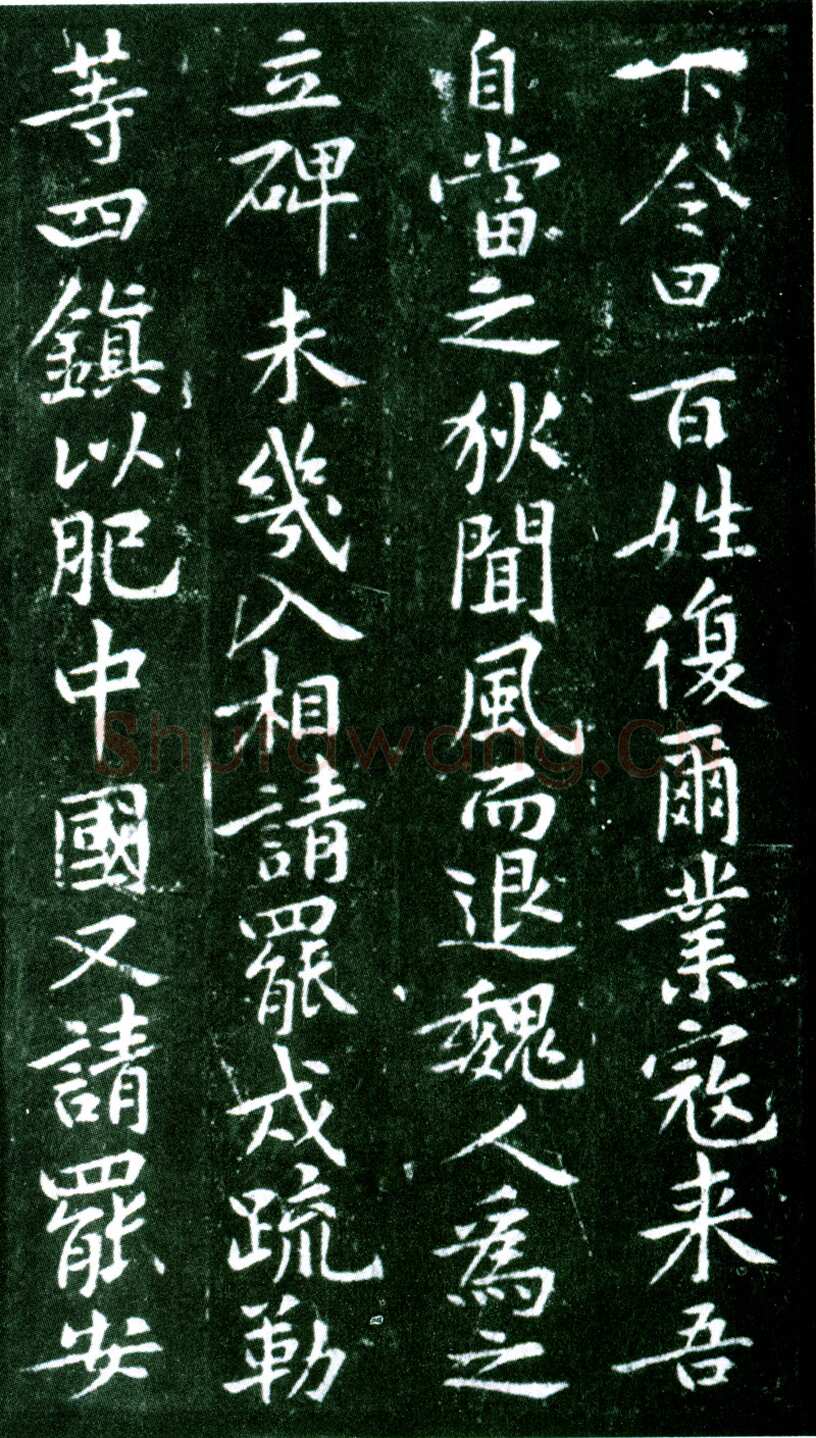 下令曰百姓復爾業寇来吾
自當之狄聞風而退魏人為之
立碑未幾入相請罷戍疏勒
等四鎮以肥中國又請罷安
Shufawang.Cn